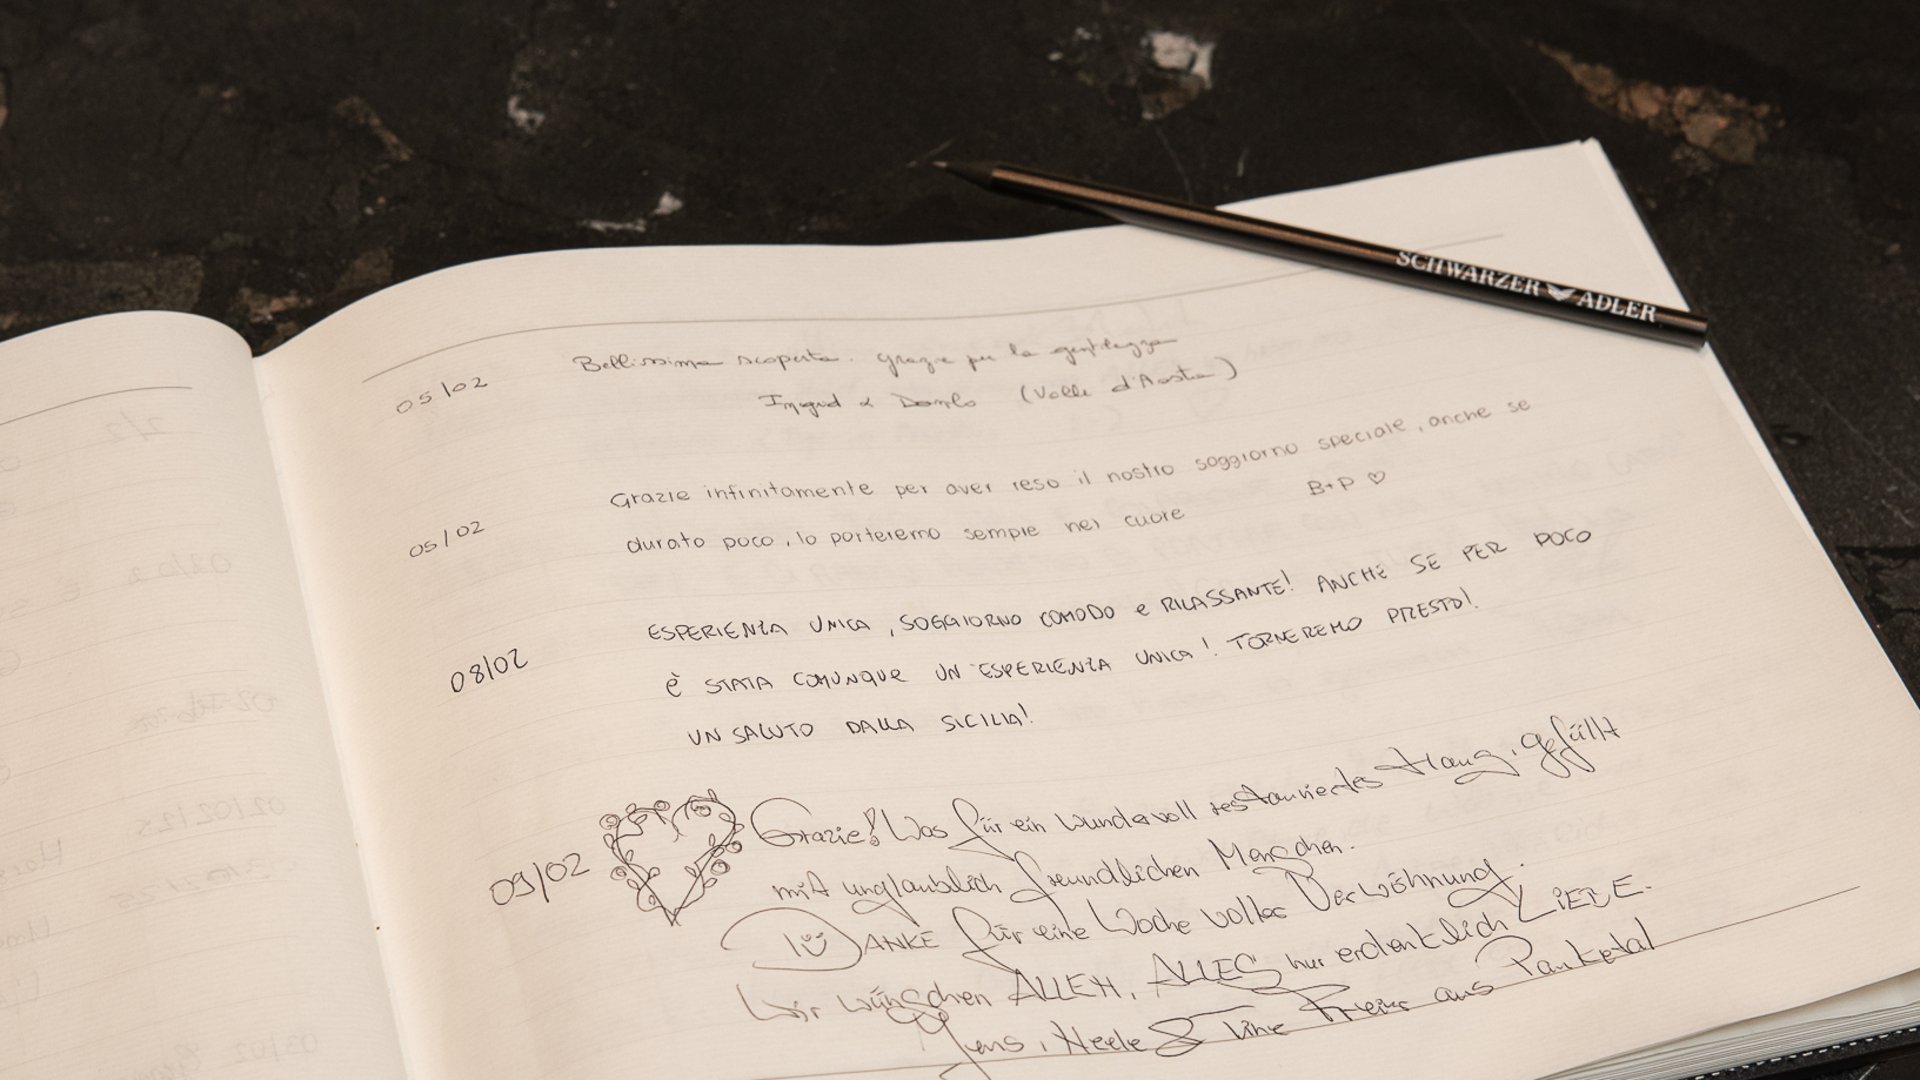 SCHWARZER ADLER
05/02 Bellissima scoperta. Grazie per la gentilezza
Ingrid & Danilo (Valle d'Aosta)
05/02 Grazie infinitamente per aver reso il nostro soggiorno speciale, anche se
durato poco, lo porteremo sempre nel cuore B+P ♡
08/02 ESPERIENZA UNICA, SOGGIORNO COMODO e RILASSANTE! ANCHE SE PER POCO
È STATA COMUNQUE UN'ESPERIENZA UNICA! TORNEREMO PRESTO!
UN SALUTO DALLA SICILIA!
09/02 Grazie! Was für ein wundervoll restauriertes Haus, gefüllt
mit unglaublich freundlichen Menschen.
DANKE für eine Woche voller Verwöhnung.
Wir wünschen ALLEN, ALLES nur erdenklich LIEBE.
Jens, Neele & Line aus Panketal
02/02/25
03/02